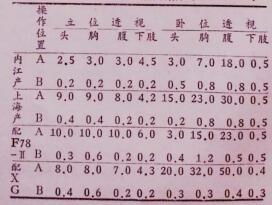 操作位置 立位透视 卧位透视
头 胸 腹 下肢 头 胸 腹 下肢
内江产 A 2.5 3.0 3.0 4.5 3.0 7.0 18.0 0.5
B 0.2 0.2 0.2 0.2 0.5 0.8 0.8 0.5
上海产 A 9.0 9.0 8.0 4.2 15.0 23.0 30.0 0.5
B 0.4 0.4 0.2 0.2 0.2 0.8 0.8 0.5
配F78-Ⅱ A 10.0 10.0 10.0 6.0 3.0 15.0 23.0 0.5
B 0.3 0.6 0.2 0.2 0.4 1.2 0.5 0.5
配XG A 8.0 8.0 7.0 4.3 20.0 32.0 50.0 0.4
B 0.4 0.6 0.2 0.2 0.3 0.3 0.4 0.3